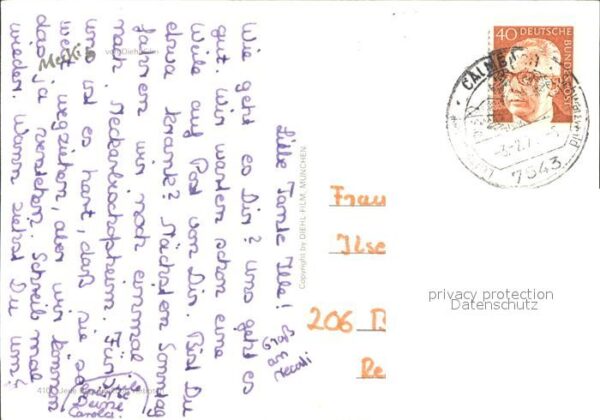 Liebe Tante Ilse!
Wie geht es Dir? Uns geht es
gut. Wir warten schon eine
Weile auf Post von Dir. Bist Du
etwa krank? Nächsten Sonntag
fahren wir noch einmal
nach Neckarbischofsheim. Für
uns ist es hart, daß sie so
weit wegziehen, aber wir können
das ja verstehen. Schreib mal
wieder. Wann ziehst Du um?
Deine
Carola
Mecki 5
Copyright by DIEHL-FILM, MÜNCHEN
40 DEUTSCHE BUNDESPOST
CALMBACH
7543
Frau
Ilse
206 B
Re
privacy protection
Datenschutz